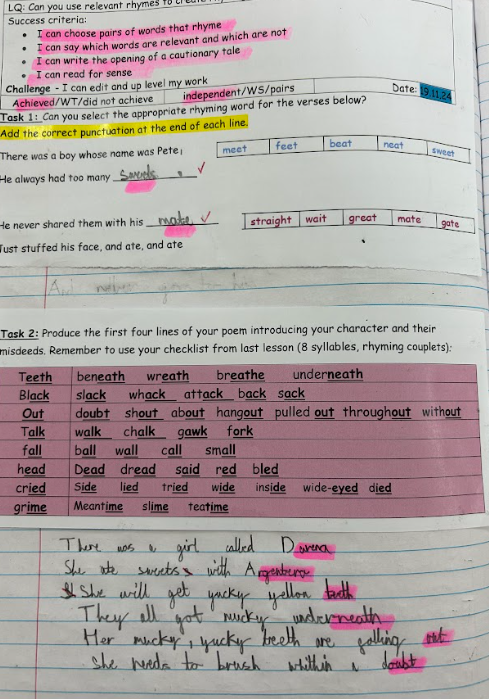 LQ: Can you use relevant rhymes to
Success criteria:
• I can choose pairs of words that rhyme
• I can say which words are relevant and which are not
• I can write the opening of a cautionary tale
• I can read for sense
Challenge - I can edit and up level my work
Achieved/WT/did not achieve independent/WS/pairs Date: 19.11.24
Task 1: Can you select the appropriate rhyming word for the verses below?
Add the correct punctuation at the end of each line.
There was a boy whose name was Pete, meet feet beat neat sweet
He always had too many
He never shared them with his mate straight wait great mate gate
Just stuffed his face, and ate, and ate
Task 2: Produce the first four lines of your poem introducing your character and their
misdeeds. Remember to use your checklist from last lesson (8 syllables, rhyming couplets):
Teeth beneath wreath breathe underneath
Black slack whack attack back sack
Out doubt shout about hangout pulled out throughout without
Talk walk chalk gawk fork
fall ball wall call small
head Dead dread said red bled
cried Side lied tried wide inside wide-eyed died
grime Meantime slime teatime
There was a girl called
She ate sweets with
She will get yucky yellow teeth
They all got mucky underneath
Her mucky, yucky teeth are falling out
She needs to brush whithin a doubt